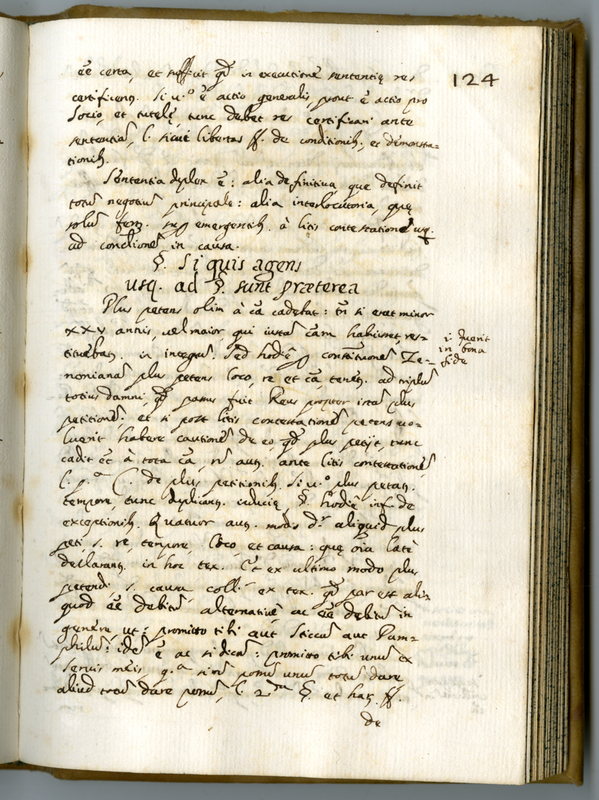 124
eẽ certa, et sufficit qd̃ in executione sententię res
certificent. Si v.º ẽ actio generalis prout ẽ actio pro
Socio, et tutelę, tunc debet res certificari ante
sententia, l. sicui libertas ff. de conditionib. et demonstra=
tionib.
Sententia duplex ẽ: alia definitiva, que definit
totũ negotiũ principale: alia interlocutoria, quę
solũ emergentib. à litis contestatione usq.
ad conclusionẽ in causa.
§. Si quis agens
usq. ad §. sunt præterea
Plus petens olim à cã cadebat: tñ si erat minor
xxv annis, vel maior, qui iustã cãm habuisset, res=
tituebat. in integrũ. Sed hodiè constitutionẽ Ze=
nonianã plus petens loco, re et cã tenet. ad triplũ
totius damni qd̃ passus fuit Reus propter istã plus
petitionẽ, et si post litis contestationẽ petens vo=
luerit habere cautionẽ de eo, qd̃ plus petijt, tunc
cadit et à tota cã, nõ aut. ante litis contestationẽ
l. p.ª C. de plus petitionib. Si v.º plus petat.
tempore, tunc duplicant. inducię, §. hodiè inf. de
exceptionib. Quatuor aut. modis dr̃ aliquid plus
peti, s. re, tempore, loco et causa: quę oĩa latè
declarant. in hoc tex. Et ex ultimo modo plus
petendi s. causa coll. ex tex. qd̃ par est aliq
quod eẽ debitũ alternativè ac eẽ debitũ in
genere, ut: promitto tibi aut Sticcũ aut Pam=
philũ: idẽ ẽ ac si dicã: promitto tibi unũ ex
servis meis q.ª si nõ possũ unũ totũ dare
aliud totũ dare possũ, l. 2.ª §. et hat. ff.
de
i. Querit
in bona
fide